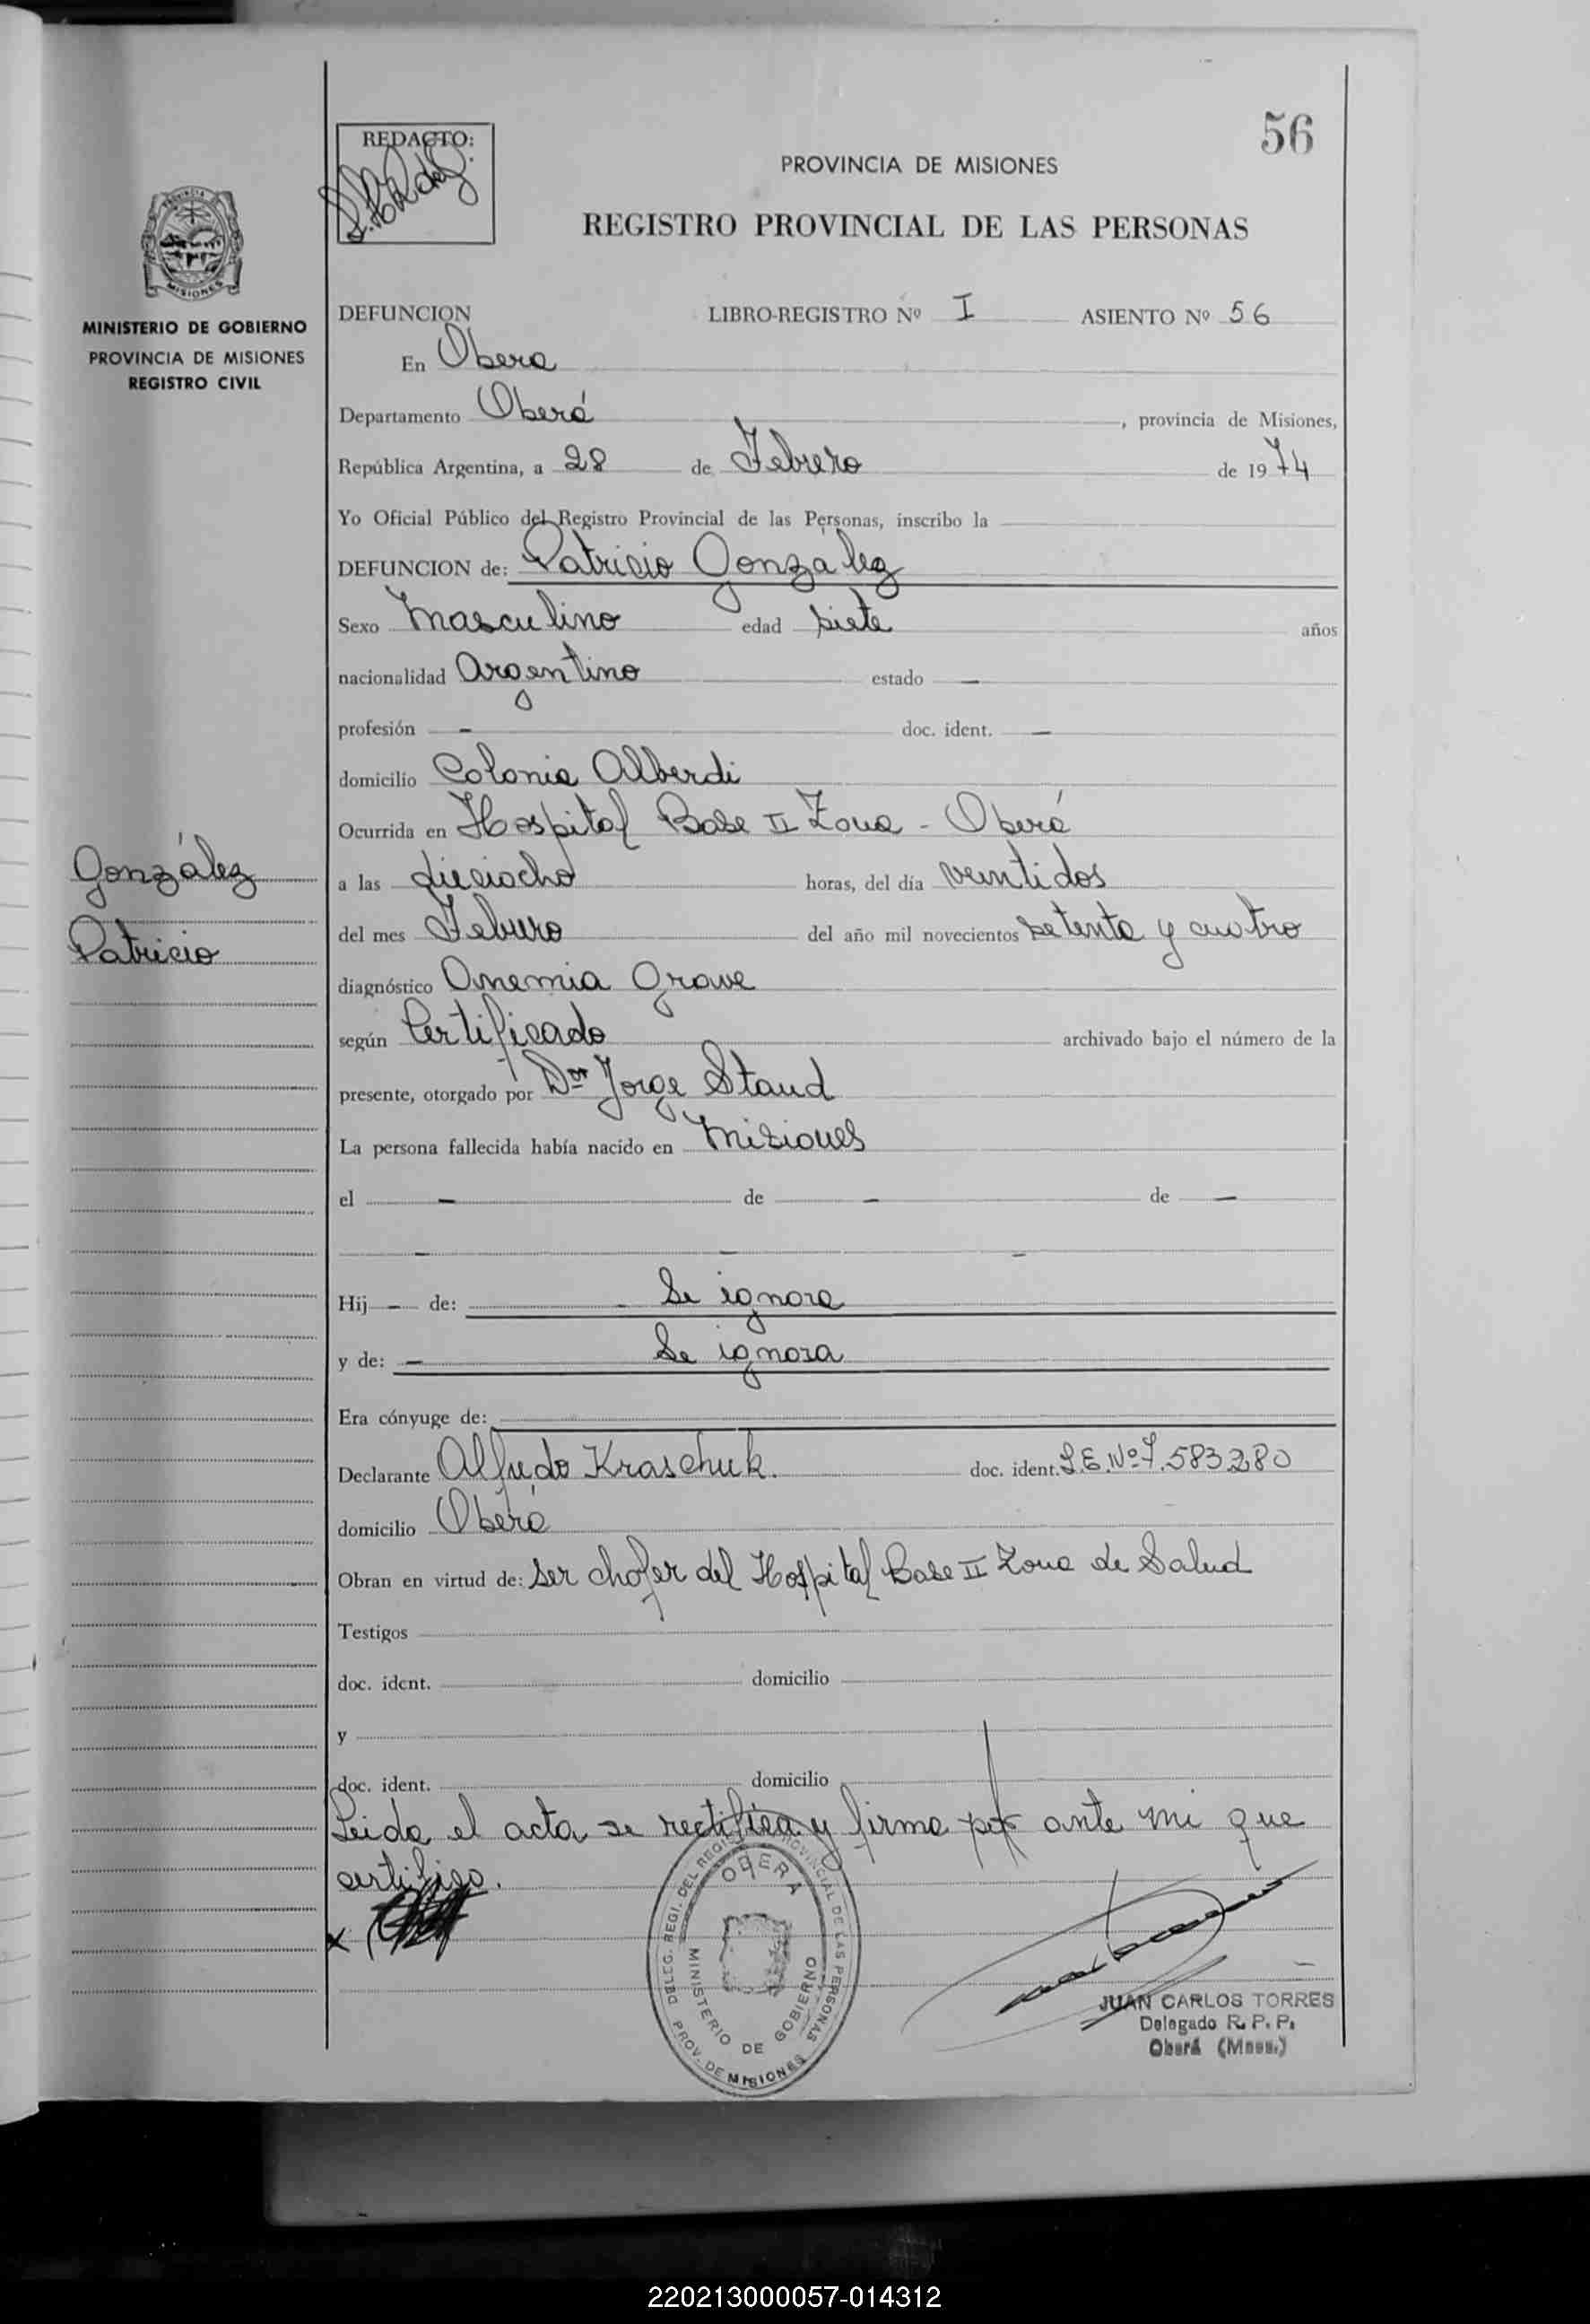 56
REDACTO:
PROVINCIA DE MISIONES
REGISTRO PROVINCIAL DE LAS PERSONAS
MISIONES
MINISTERIO DE GOBIERNO
PROVINCIA DE MISIONES
REGISTRO CIVIL
DEFUNCION LIBRO-REGISTRO Nº I ASIENTO Nº 56
En Obera
Departamento Oberá, provincia de Misiones,
República Argentina, a 28 de Febrero de 1974
Yo Oficial Público del Registro Provincial de las Personas, inscribo la
DEFUNCION de: Patricio González
Sexo Masculino edad siete años
nacionalidad Argentino estado —
profesión - doc. ident. —
domicilio Colonia Alberdi
Ocurrida en Hospital Base II Zona - Oberá
González
a las dieciocho horas, del día veintidos
Patricio
del mes Febrero del año mil novecientos setenta y cuatro
diagnóstico Anemia Grave
según Certificado archivado bajo el número de la
presente, otorgado por Dor Jorge Staud
La persona fallecida había nacido en Misiones
el — de — de —
— — —
Hij — de: Se ignora
y de: — Se ignora
Era cónyuge de:
Declarante Alfredo Kraschuk. doc. ident. L.E. Nº 7.583280
domicilio Oberá
Obran en virtud de: ser chofer del Hospital Base II Zona de Salud
Testigos
doc. ident. domicilio
y
doc. ident. domicilio
Leida el acta se rectifica y firma por ante mi que
certifico.
x
DELEG. REGI. DEL REGIS. PROVINCIAL DE LAS PERSONAS
OBERA
MINISTERIO DE GOBIERNO
PROV. DE MISIONES
JUAN CARLOS TORRES
Delegado R. P. P.
Oberá (Mnes.)
220213000057-014312